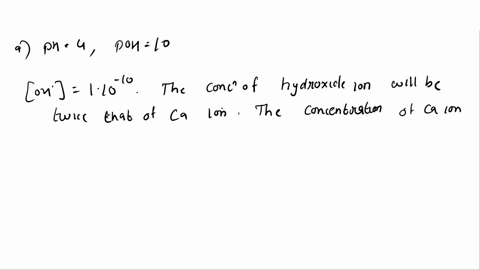 a) pH = 4, pOH = 10
[OH⁻] = 1·10⁻¹⁰. The concⁿ of hydroxide ion will be
twice that of Ca ion. The concentration of Ca ion